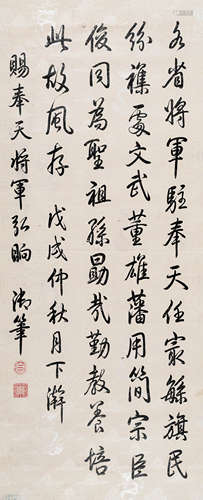 各省將軍駐奉天任最繁旗民
紛襍處文武董雄藩用簡宗臣
俊同為聖祖孫勖哉勤教養培
此故風存 戊戌仲秋月下澣
賜奉天將軍弘晌 御筆